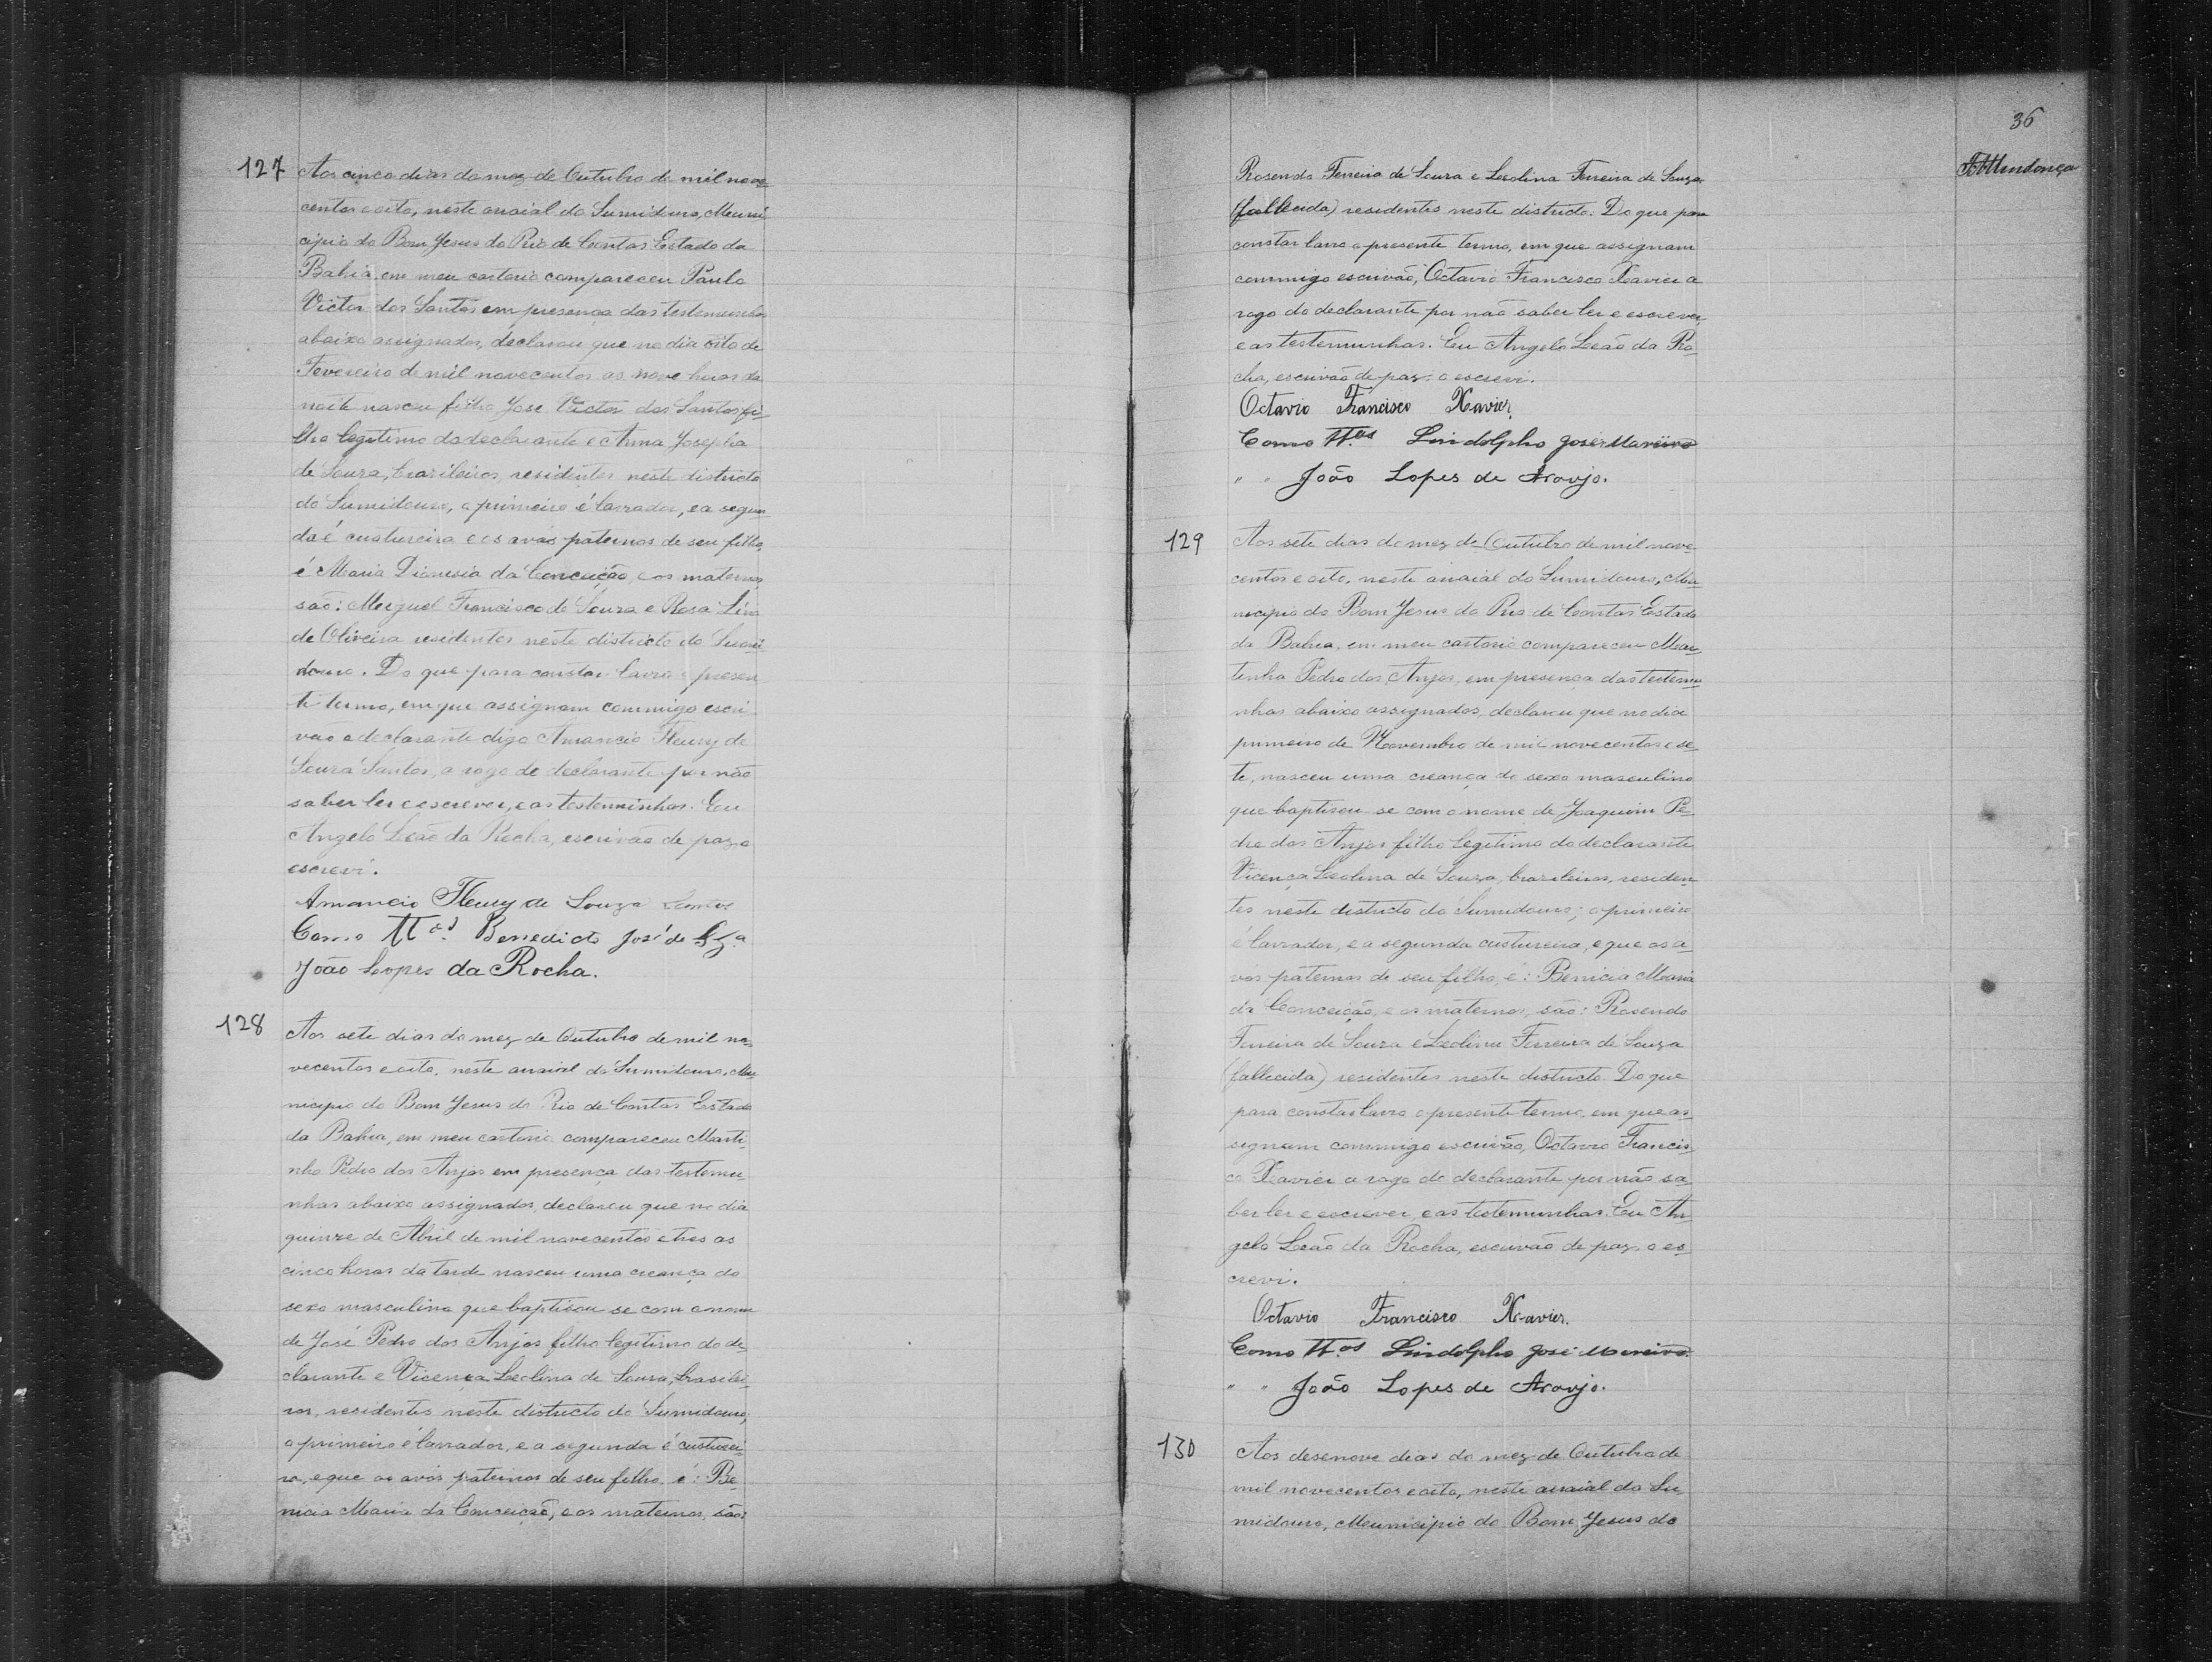 127
Aos cinco dias do mez de Outubro de mil nove
centos e oito, neste arraial do Sumidouro, Muni
cipio do Bom Jesus do Rio de Contas Estado da
Bahia, em meu cartorio compareceu Paulo
Victor dos Santos em presença das testemunhas
abaixo assignados, declarou que no dia oito de
Fevereiro de mil novecentos as nove horas da
noite nasceu filho José Victor dos Santos fi-
lho legitimo do declarante e Anna Josepha
de Souza, brazileiros, residentes neste districto
do Sumidouro, o primeiro é lavrador, e a segun
da é custureira e os avós paternos de seu filho,
é Maria Dionisia da Conceição, e os maternos
são: Miguel Francisco de Souza e Rosa Lina
de Oliveira residentes neste districto do Sumi-
douro. Do que para constar lavro o presen
te termo, em que assignam commigo escri
vão o declarante digo Amancio Fleury de
Souza Santos, a rogo de declarante por não
saber ler e escrever, e as testeminhas. Eu
Angelo Leão da Rocha, escrivão de paz o
escrevi.
Amancio Fleury de Souza Santos
Como ttas Benedicto José de Sza
João Lopes da Rocha.
128
Aos sete dias do mez de Outubro de mil no-
vecentos e oito, neste arraial do Sumidouro, Mu-
nicipio do Bom Jesus do Rio de Contas Estado
da Bahia, em meu cartorio compareceu Marti
nho Pedro dos Anjos em presença das testemu
nhas abaixo assignados, declarou que no dia
quinze de Abril de mil novecentos e tres as
cinco horas da tarde nasceu uma creança do
sexo masculino que baptisou-se com o nome
de José Pedro dos Anjos filho legitimo do de-
clarante e Vicença Leolina de Souza, brasilei-
ros, residentes neste districto do Sumidouro,
o primeiro é lavrador, e a segunda é custurei-
ra, e que os avós paternos de seu filho, é: Be-
nicia Maria da Conceição, e os maternos, são:
36
Mendonça
Rosendo Ferreira de Souza e Leolina Ferreira de Souza
(fallecida) residentes neste districto. Do que para
constar lavro o presente termo, em que assignam
commigo escrivão, Octavio Francisco Xavier a
rogo do declarante por não saber ler e escrever,
e as testemunhas. Eu Angelo Leão da Ro-
cha, escrivão de paz o escrevi.
Octavio Francisco Xavier.
Como ttas Lindolpho José
" " João Lopes de Araujo.
129
Aos sete dias do mez de Outubro de mil nove
centos e oito, neste arraial do Sumidouro, Mu-
nicipio do Bom Jesus do Rio de Contas Estado
da Bahia, em meu cartorio compareceu Mar-
tinho Pedro dos Anjos, em presença das testemu
nhas abaixo assignados, declarou que no dia
primeiro de Novembro de mil novecentos e se-
te, nasceu uma creança do sexo masculino
que baptisou-se com o nome de Joaquim Pe-
dro dos Anjos filho legitimo do declarante
Vicença Leolina de Souza, brazileiros, residen
tes neste districto do Sumidouro; o primeiro
é lavrador, e a segunda custureira, e que os a-
vós paternos de seu filho, é: Benicia Maria
da Conceição, e os maternos, são: Rosendo
Ferreira de Souza e Leolina Ferreira de Souza
(fallecida) residentes neste districto. Do que
para constar lavro o presente termo, em que as-
signam commigo escrivão, Octavio Francis-
co Xavier a rogo do declarante por não sa-
ber ler e escrever, e as testemunhas. Eu An
gelo Leão da Rocha, escrivão de paz o es-
crevi.
Octavio Francisco Xavier.
Como ttas Lindolpho José
" " João Lopes de Araujo.
130
Aos desenove dias do mez de Outubro de
mil novecentos e oito, neste arraial do Su
midouro, Municipio do Bom Jesus do